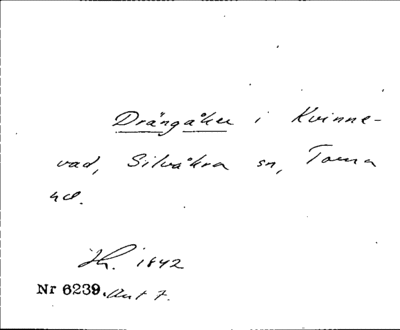 Drängåker i Kvinne-
vad, Silvåkra sn, Torna
hd.
1842
Nr 6239. Akt 7.